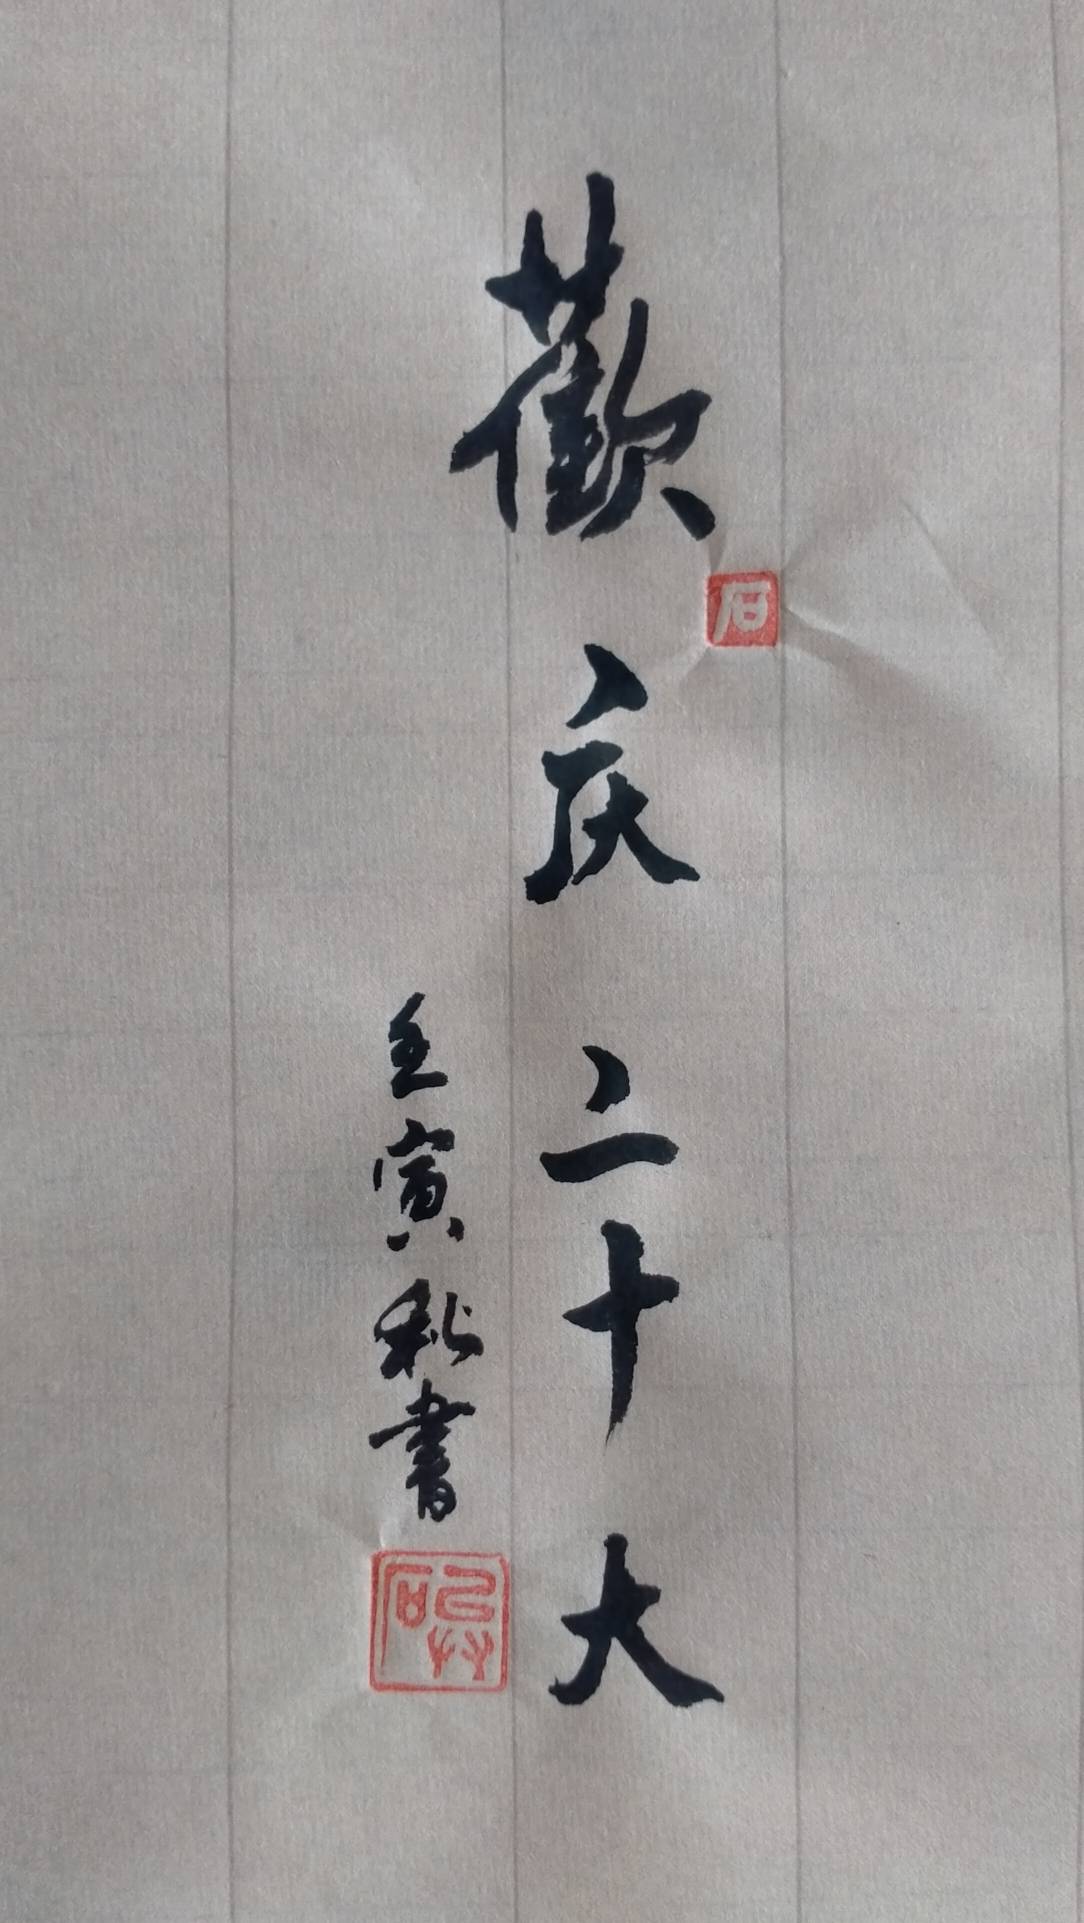 歡庆二十大
石
壬寅秋書